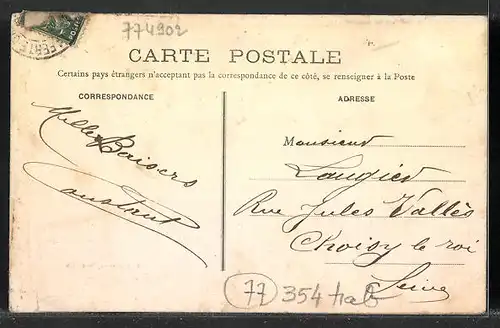 774902
CARTE POSTALE
Certains pays étrangers n'acceptant pas la correspondance de ce côté, se renseigner à la Poste
CORRESPONDANCE
ADRESSE
Mille Baisers
Constant
Monsieur
Laugier
Rue Jules Vallès
Choisy le roi
Seine
77 354